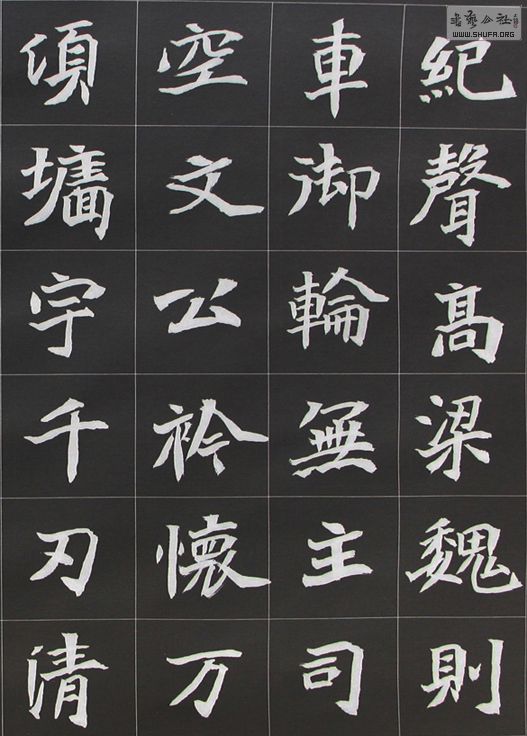 紀聲髙梁魏則
車御輪無主司
空文公衿懷万
頃墻宇千刃清
書藝公社
WWW.SHUFA.ORG